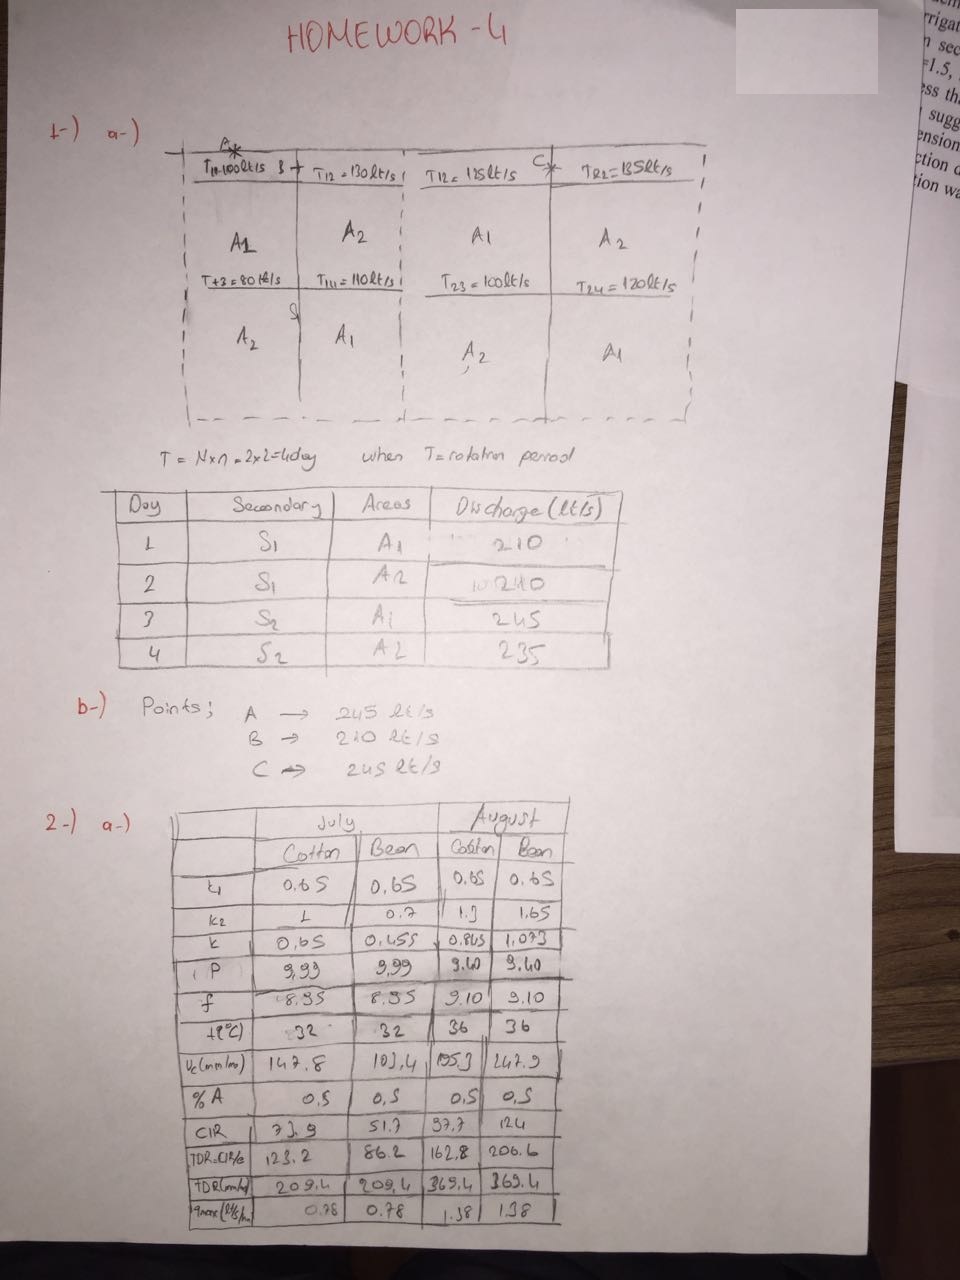 HOMEWORK - 4
1-) a-)
A
T11=100lt/s B T12=130lt/s T12=125lt/s C T22=135lt/s
A1 A2 A1 A2
T+3=80lt/s T14=110lt/s T23=100lt/s T24=120lt/s
S
A2 A1 A2 A1
T = N×n = 2×2=4day when T=rotation period
Day Secondary Areas Discharge (lt/s)
1 S1 A1 210
2 S1 A2 210
3 S2 A1 245
4 S2 A2 235
b-) Points; A → 245 lt/s
B → 210 lt/s
C → 245 lt/s
2-) a-)
July August
Cotton Bean Cotton Bean
k1 0,65 0,65 0,65 0,65
k2 1 0.7 1.3 1.65
k 0,65 0,455 0.845 1,073
P 9,99 9,99 9.40 9.40
f 8.95 8.95 9.10 9.10
t(°C) 32 32 36 36
Uc(mm/mo) 147.8 103,4 195.3 247.9
%A 0,5 0,5 0,5 0,5
CIR 73.9 51.7 97.7 124
TDR=CIR/e 123.2 86.2 162,8 206.6
TDR 209,4 209,4 369,4 369.4
qmax 0.78 0.78 1.38 1.38
rrigat
n sec
=1.5,
ess th
sugg
ension
ction
tion wa